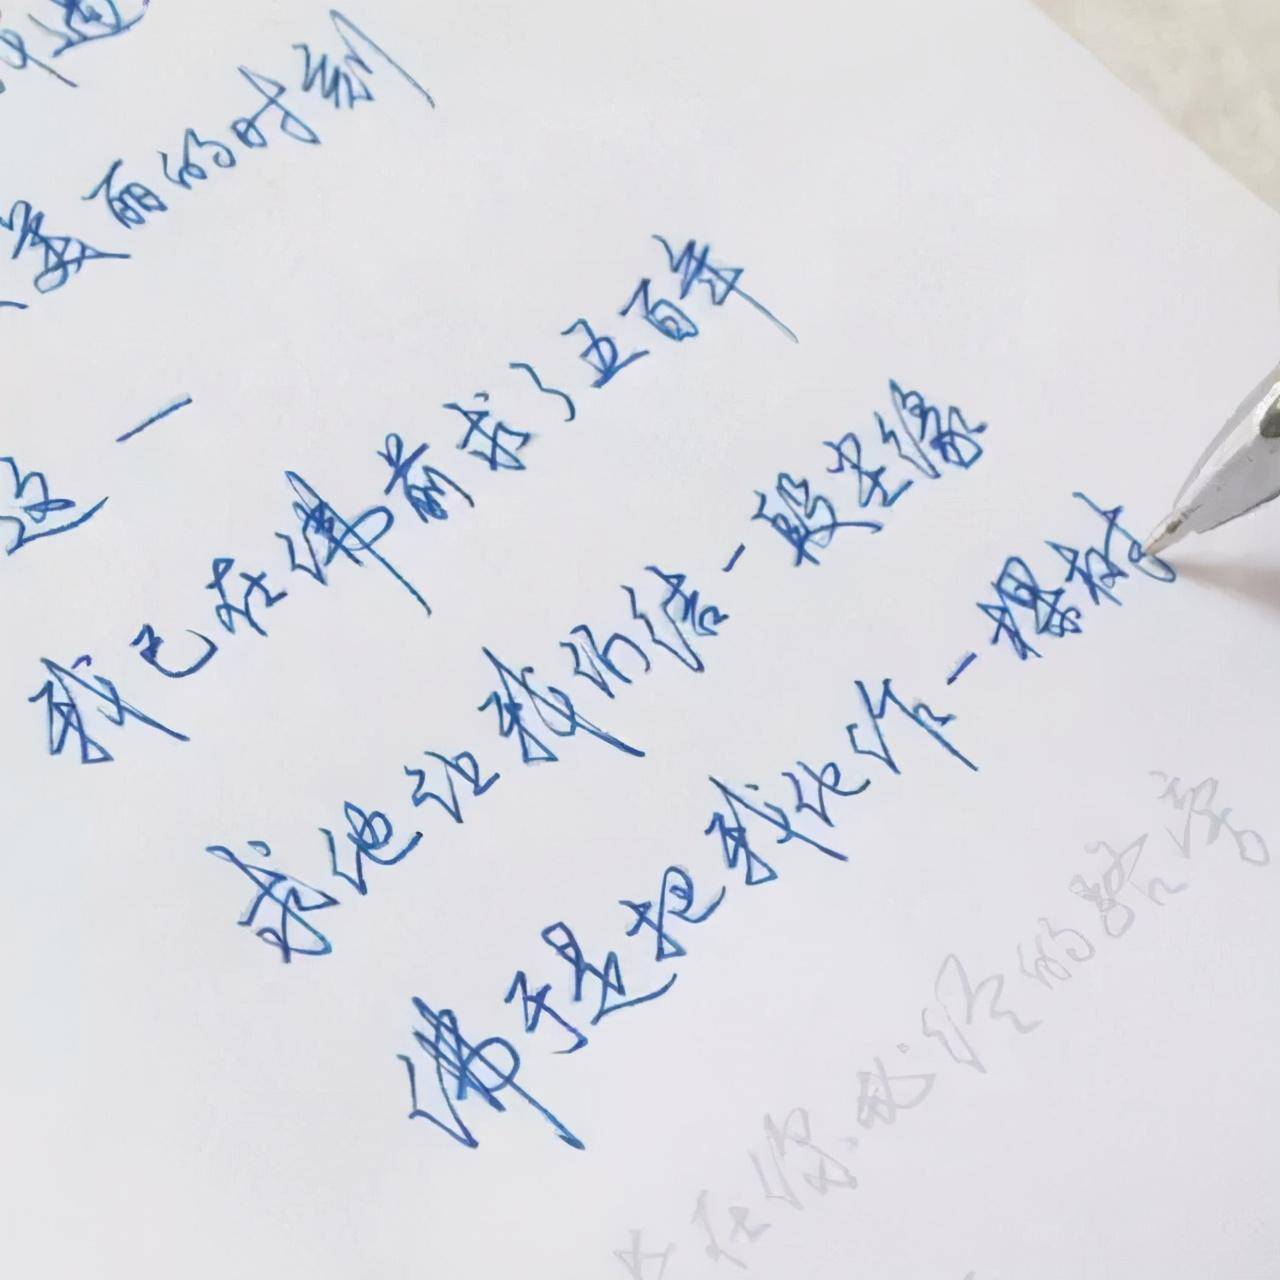 美丽的时刻
这—
我已在佛前求了五百年
求他让我们结一段尘缘
佛于是把我化作一棵树
长在你必经的路旁